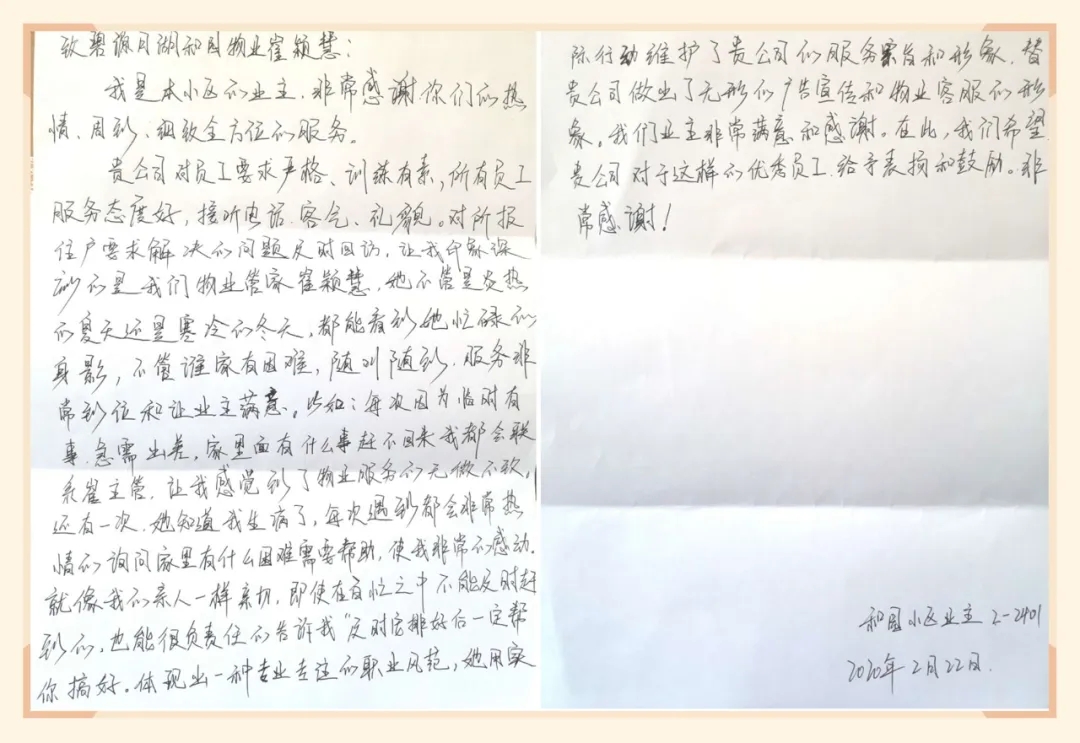 致碧源月湖和园物业崔颖慧：
我是本小区的业主，非常感谢你们的热
情、周到、细致全方位的服务。
贵公司对员工要求严格、训练有素，所有员工
服务态度好，接听电话、客气、礼貌。对所报
住户要求解决的问题及时回访，让我印象深
刻的是我们物业管家崔颖慧，她不管是炎热
的夏天还是寒冷的冬天，都能看到她忙碌的
身影，不管谁家有困难，随叫随到，服务非
常到位和让业主满意。比如：每次因为临时有
事急需出差，家里面有什么事赶不回来我都会联
系崔主管，让我感觉到了物业服务的无微不致，
还有一次，她知道我生病了，每次遇到都会非常热
情的询问家里有什么困难需要帮助，使我非常的感动。
就像我的亲人一样亲切，即使在百忙之中不能及时赶
到的，也能很负责任的告诉我“及时安排好后一定帮
你搞好。体现出一种专业专注的职业风范，她用实
际行动维护了贵公司的服务宗旨和形象，替
贵公司做出了无形的广告宣传和物业客服的形
象。我们业主非常满意和感谢。在此，我们希望
贵公司对于这样的优秀员工，给予表扬和鼓励。非
常感谢！
和园小区业主 2-2401
2020年2月22日.